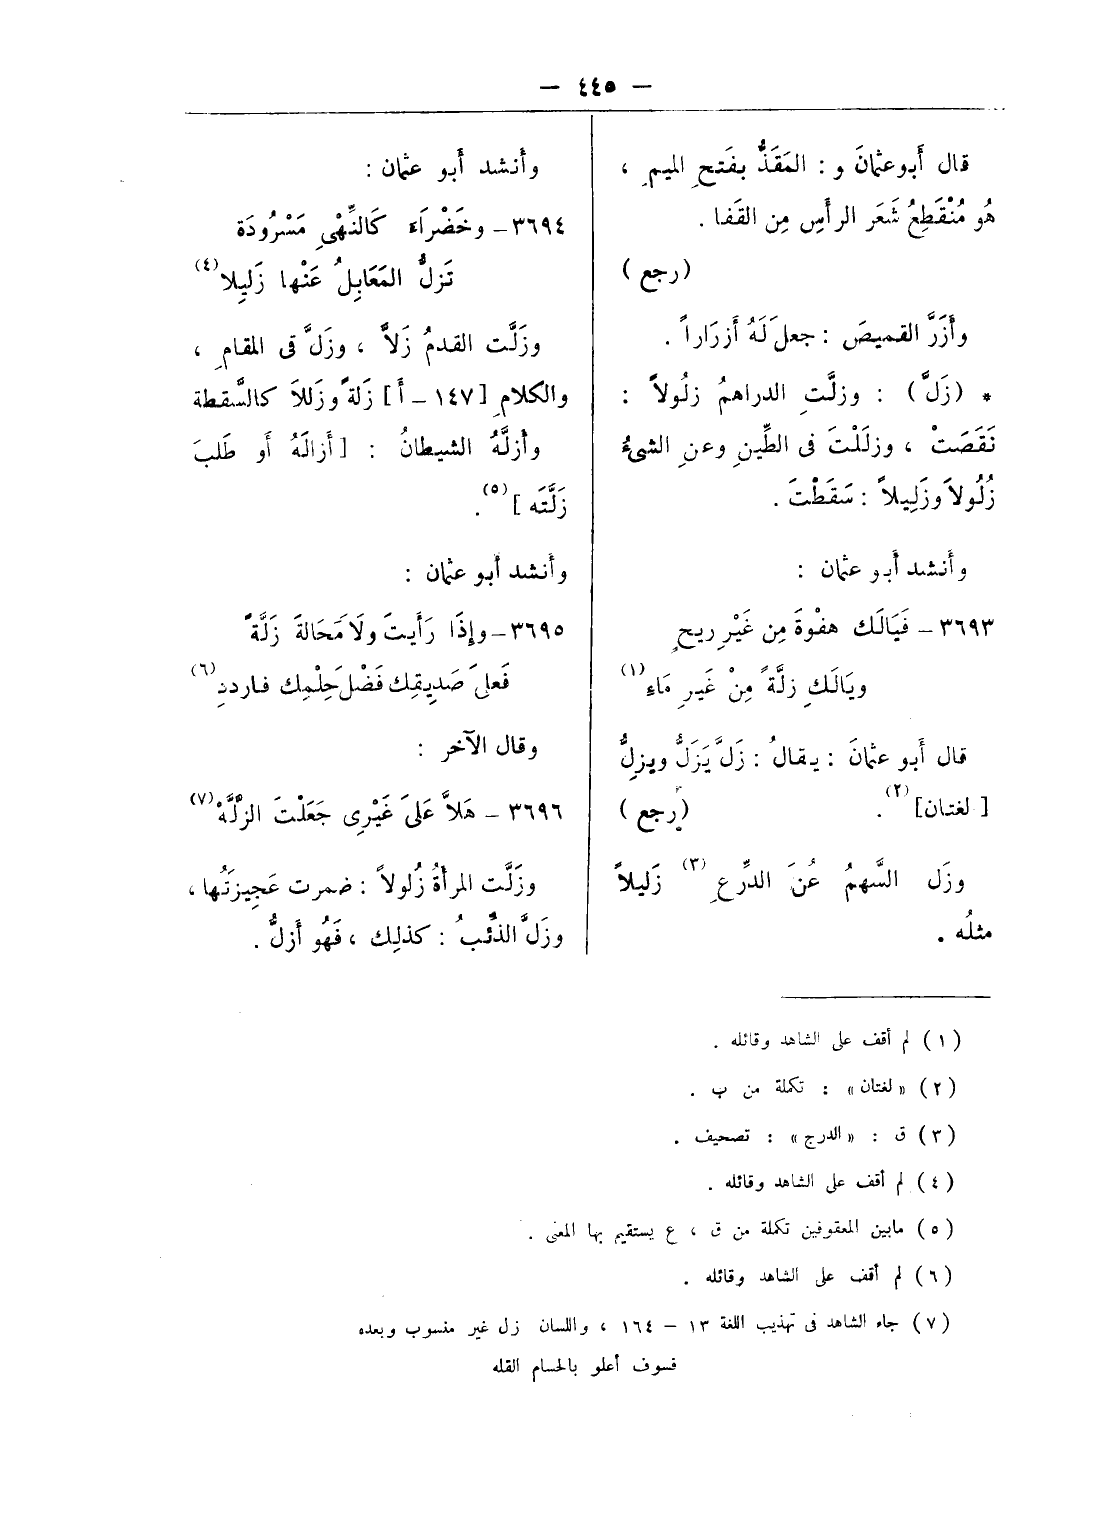 — ٤٤٥ —
قال أَبوعثمانَ و : المَقَذُّ بفَتحِ الميمِ ،
هُو مُنْقَطِعُ شَعَر الرأَسِ مِن القَفا .
(رجع )
وأَزَرَّ القميصَ : جعلَ لَهُ أَزرَاراً .
* (زَلَّ) : وزلَّتِ الدراهمُ زلُولاً :
نَقَصَتْ ، وزلَلْتَ فى الطِّينِ وعنِ الشىءُ
زُلُولاً وزَلِيلاً : سَقَطْتَ .
وأَنشد أَبو عثمان :
٣٦٩٣ – فَيَالَك هفْوةَ مِن غَيْرِ ريحٍ
ويَالَكِ زلَّةً مِنْ غَيرِ مَاءِ (١)
قال أَبو عثمانَ : يقالُ : زَلَّ يَزَلُّ ويزِلُّ
[ لغتان] (٢) . (رجع )
وزَل السَّهمُ عُنَ الدِّرعِ (٣) زَلِيلاً
مثلُه .
وأَنشد أَبو عثمان :
٣٦٩٤ – وخَضْرَاءَ كَالنِّهْىِ مَسْرُودَة
تَزلُّ المَعَابِلُ عَنْها زَلِيلا (٤)
وزَلَّت القدمُ زَلاًّ ، وزَلَّ فى المقامِ ،
والكلامِ [١٤٧ – أَ] زَلةً وزَللاَ كالسَّقطة
وأَزلَّهُ الشيطانُ : [ أَزالَهُ أَو طَلبَ
زَلَّتَه ] (٥) .
وأَنشد أَبو عثمان :
٣٦٩٥ – وإِذَا رَأَيتَ ولَا مَحَالةَ زَلَّةً
فَعلَى صَدِيقِك فَضْلَ حِلْمِك فاردد (٦)
وقال الآخر :
٣٦٩٦ – هَلاَّ عَلَى غَيْرِى جَعَلْتَ الزَّلَّهْ (٧)
وزَلَّت المرأَةُ زُلولاً : ضمرت عَجِيزَتُها ،
وزَلَّ الذِّئبُ : كذلِك ، فَهُو أَزلُّ .
(١) لم أقف على الشاهد وقائله .
(٢) « لغتان » : تكملة من ب .
(٣) ق : « الدرج » : تصحيف .
(٤) لم أقف على الشاهد وقائله .
(٥) مابين المعقوفين تكملة من ق ، ع يستقيم بها المعنى .
(٦) لم أقف على الشاهد وقائله .
(٧) جاء الشاهد فى تهذيب اللغة ١٣ – ١٦٤ ، واللسان زل غير منسوب وبعده
فسوف أعلو بالحسام القله